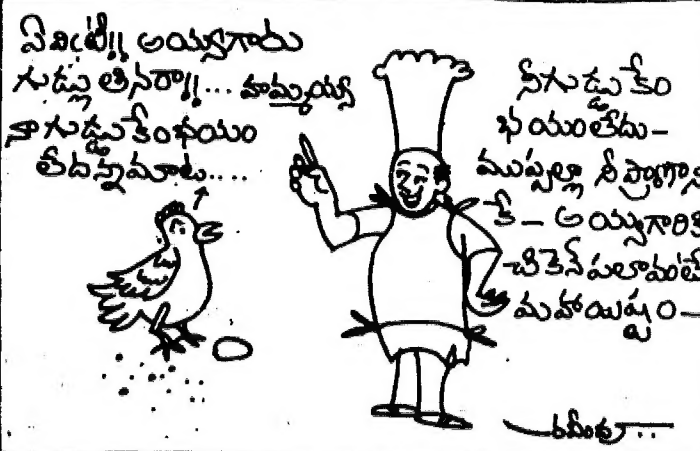 ఏమిటీ!! అయ్యగారు
గుడ్లు తినరా!!... హమ్మయ్య
నా గుడ్డుకేం భయం
లేదన్నమాట....
నీ గుడ్డు కేం
భయంలేదు-
ముప్పల్లా నీ ప్రాణాని
కే- అయ్యగారికి
చికెన్ పలావంటే
మహాయిష్టం-